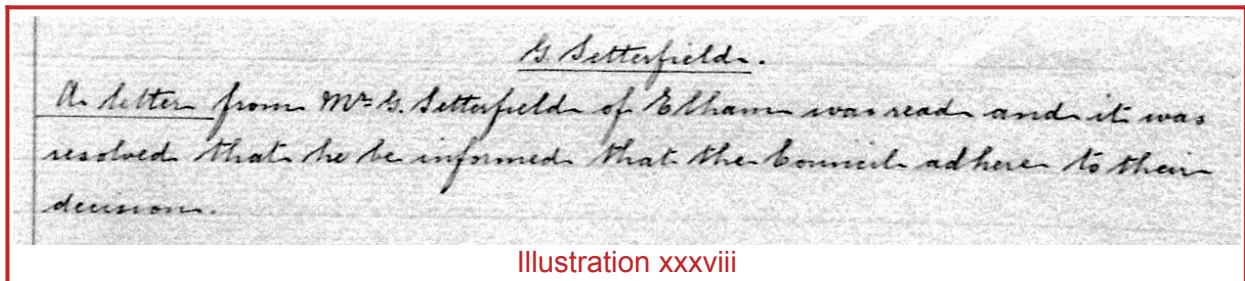 G Setterfield.
A letter from Mr G. Setterfield of Elham was read and it was
resolved that he be informed that the Council adhere to their
decision.
Illustration xxxviii